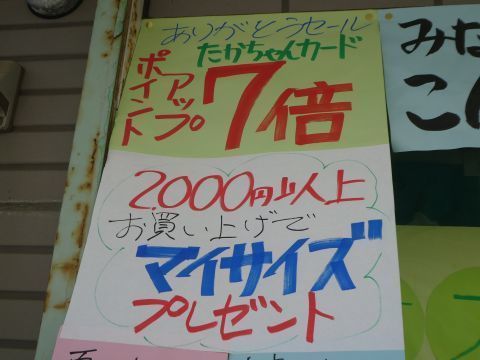 ありがとうセール
たかちゃんカード
ポイント
アップ
7倍
2,000円以上
お買い上げで
マイサイズ
プレゼント
みな
こん